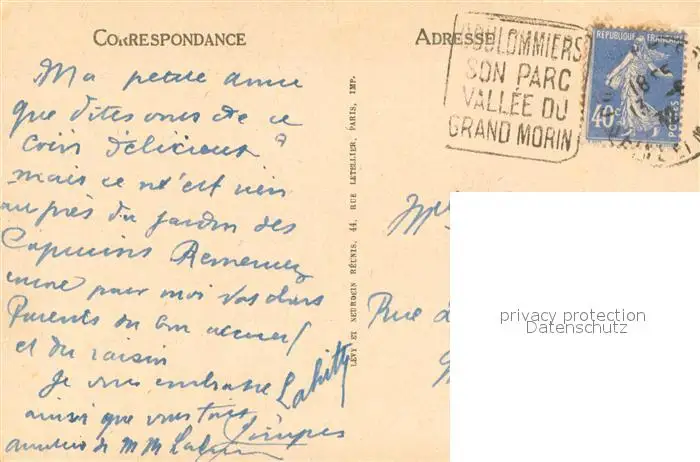 CORRESPONDANCE
Ma petite amie
que dites vous de ce
coin délicieux ?
mais ce n'est rien
auprès du jardin des
Capucins Remerciez
encore pour moi vos chers
Parents du bon accueil
et du raisin
Je vous embrasse
ainsi que vous tous
de M M
LÉVY ET NEURDEIN RÉUNIS, 44, RUE LETELLIER, PARIS, IMP.
ADRESSE
COULOMMIERS
SON PARC
VALLÉE DU
GRAND MORIN
REPUBLIQUE FRANÇAISE
40c
POSTES
18
13
Rue
privacy protection
Datenschutz